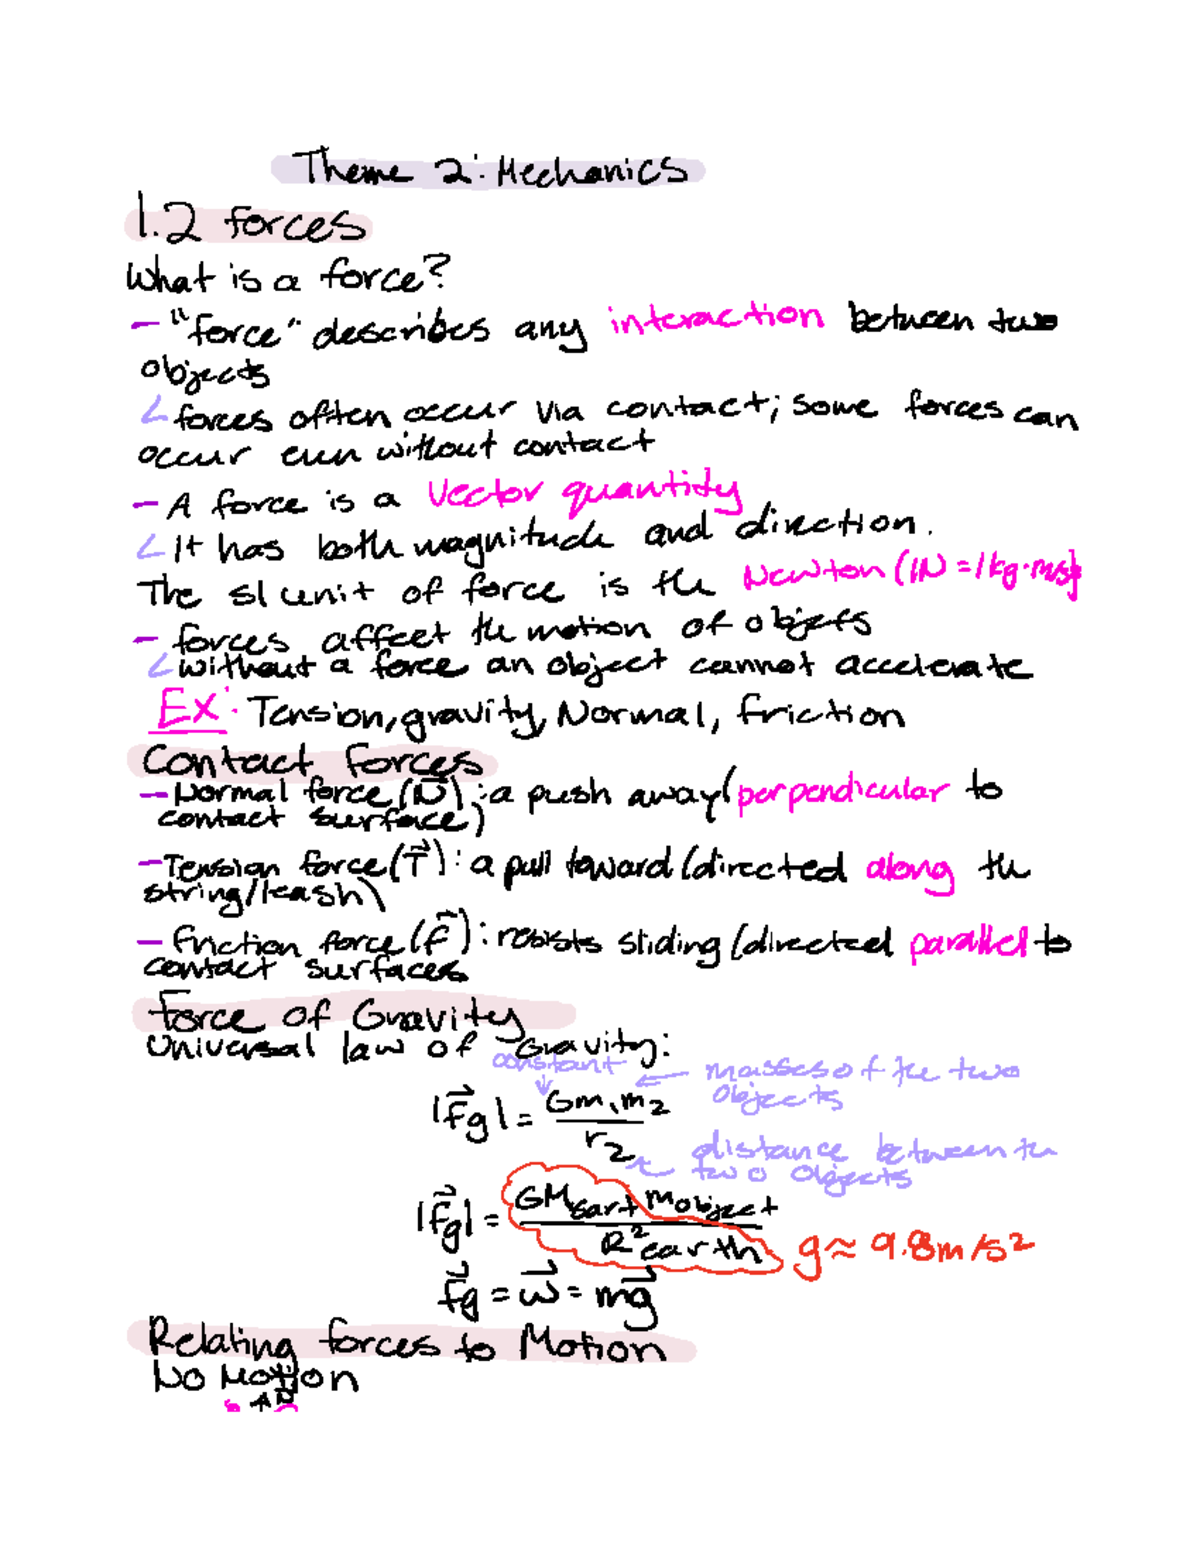 Theme 2: Mechanics
1.2 forces
What is a force?
- "force" describes any interaction between two
objects
forces often occur via contact; some forces can
occur even without contact
- A force is a vector quantity
It has both magnitude and direction.
The SI unit of force is the Newton (1N = 1kg·m/s
- forces affect the motion of objects
without a force an object cannot accelerate
Ex: Tension, gravity, Normal, friction
Contact forces
- Normal force (N⃗): a push away (perpendicular to
contact surface)
- Tension force (T⃗): a pull toward (directed along the
string/leash)
- friction force (f⃗): resists sliding (directed parallel to
contact surfaces
Force of Gravity
Universal law of Gravity:
constant
masses of the two
objects
|F⃗g| = Gm₁m₂ / r2
distance between the
two objects
|F⃗g| = GMearth mobject / R²earth
g ≈ 9.8m/s²
F⃗g = w⃗ = mg⃗
Relating forces to Motion
No Motion
N